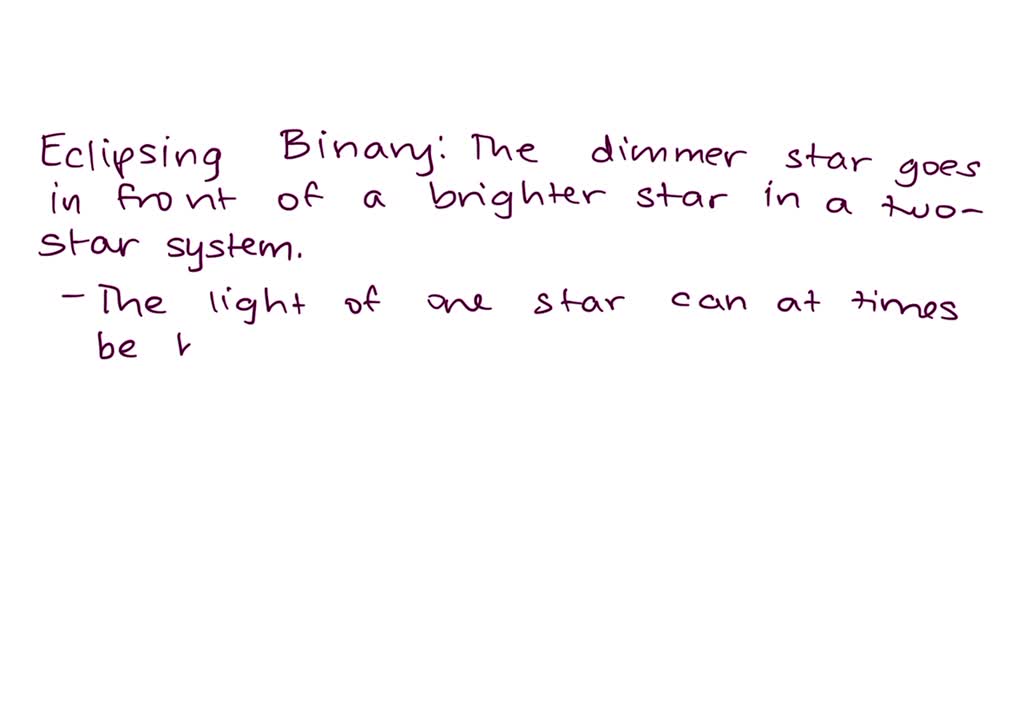 Eclipsing Binary: The dimmer star goes
in front of a brighter star in a two-
star system.
- The light of one star can at times
be